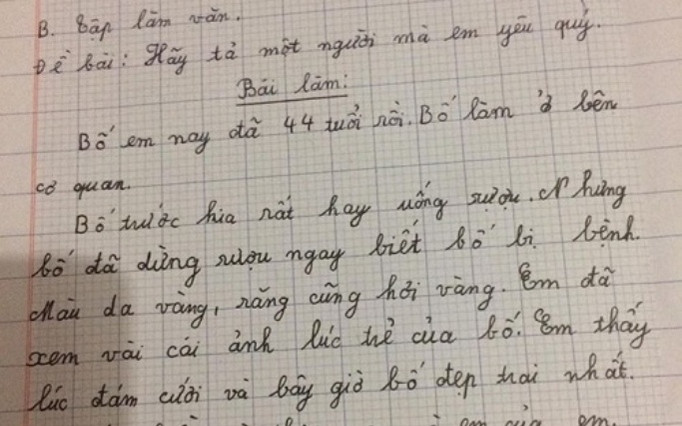 B. Tập làm văn.
Đề bài: Hãy tả một người mà em yêu quý.
Bài làm:
Bố em nay đã 44 tuổi rồi. Bố làm ở bên
cơ quan.
Bố trước kia rất hay uống rượu. Nhưng
bố đã dừng rượu ngay biết bố bị bệnh.
Màu da vàng, răng cũng hơi vàng. Em đã
xem vài cái ảnh lúc trẻ của bố. Em thấy
lúc đám cưới và bây giờ bố đẹp trai nhất.
em của em.